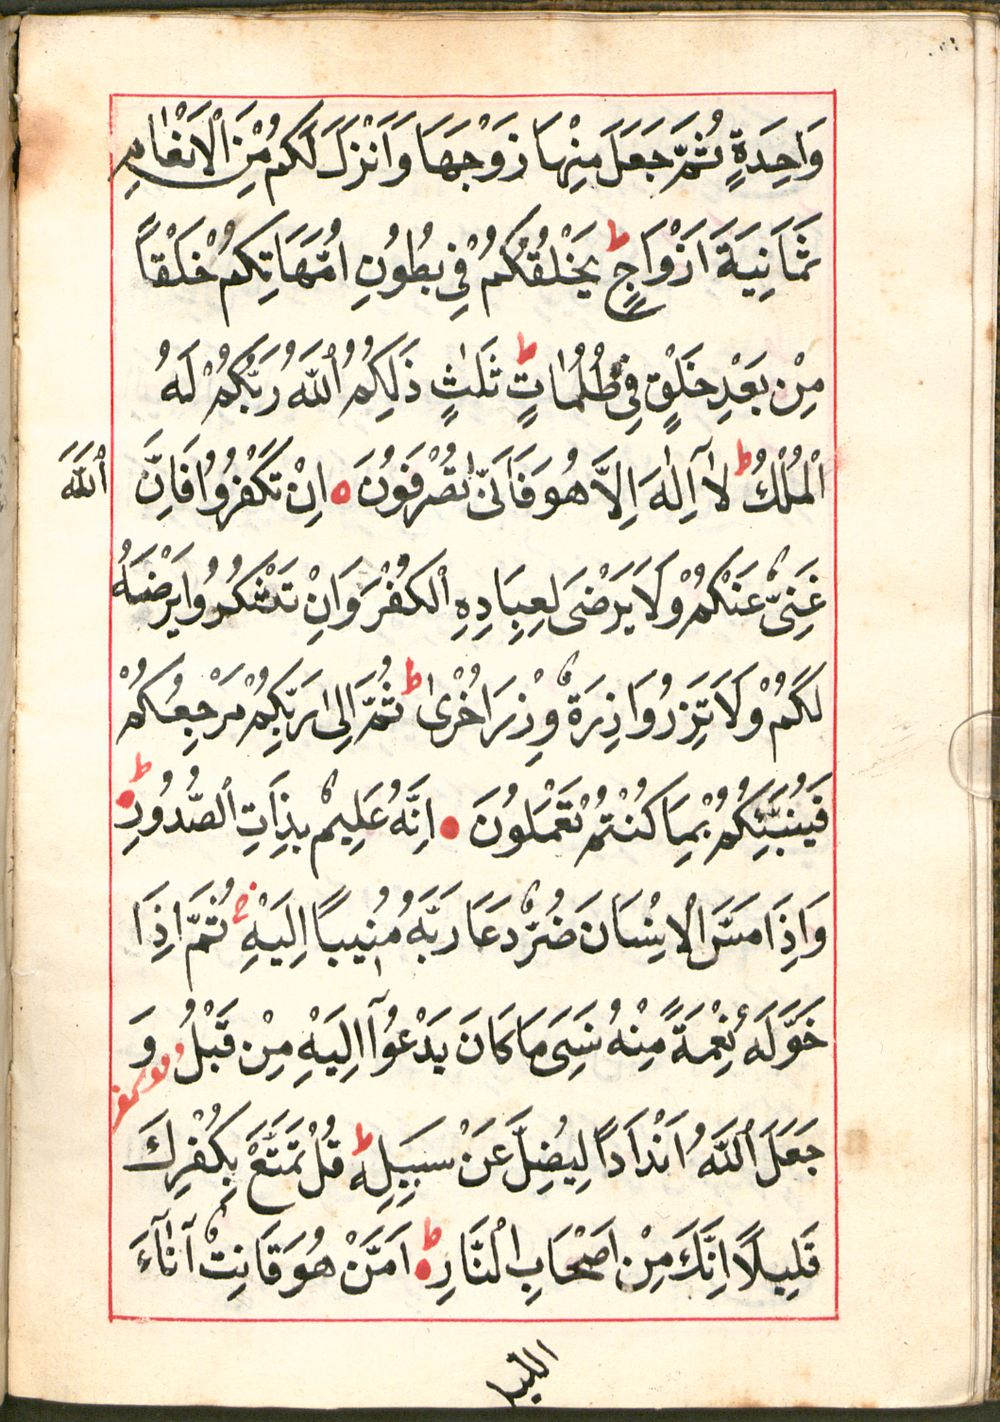 وَاحِدَةٍ ثُمَّ جَعَلَ مِنْهَا زَوْجَهَا وَاَنْزَلَ لَكُمْ مِنَ الْاَنْعَامِ
ثَمَانِيَةَ اَزْوَاجٍ ط يَخْلُقُكُمْ فِي بُطُونِ اُمَّهَاتِكُمْ خَلْقًا
مِنْ بَعْدِ خَلْقٍ فِي ظُلُمَاتٍ ط ثَلٰثٍ ذَلِكُمُ اللّٰهُ رَبُّكُمْ لَهُ
الْمُلْكُ ط لَآ اِلٰهَ اِلَّا هُوَ فَاَنّٰى تُصْرَفُونَ اِنْ تَكْفُرُوا فَاِنَّ اللّٰهَ
غَنِىٌّ عَنْكُمْ وَلَا يَرْضَى لِعِبَادِهِ الْكُفْرَ وَاِنْ تَشْكُرُوا يَرْضَهُ
لَكُمْ وَلَا تَزِرُ وَازِرَةٌ وِزْرَ اُخْرٰى ط ثُمَّ اِلٰى رَبِّكُمْ مَرْجِعُكُمْ
فَيُنَبِّئُكُمْ بِمَا كُنْتُمْ تَعْمَلُونَ اِنَّهُ عَلِيمٌ بِذَاتِ الصُّدُورِ ط
وَاِذَا مَسَّ الْاِنْسَانَ ضُرٌّ دَعَا رَبَّهُ مُنِيبًا اِلَيْهِ ثُمَّ اِذَا
خَوَّلَهُ نِعْمَةً مِنْهُ نَسِىَ مَا كَانَ يَدْعُوآ اِلَيْهِ مِنْ قَبْلُ وَ
جَعَلَ لِلّٰهِ اَنْدَادًا لِيُضِلَّ عَنْ سَبِيلِهِ ط قُلْ تَمَتَّعْ بِكُفْرِكَ
قَلِيلًا اِنَّكَ مِنْ اَصْحَابِ النَّارِ ط اَمَّنْ هُوَ قَانِتٌ آنَآءَ
الليل